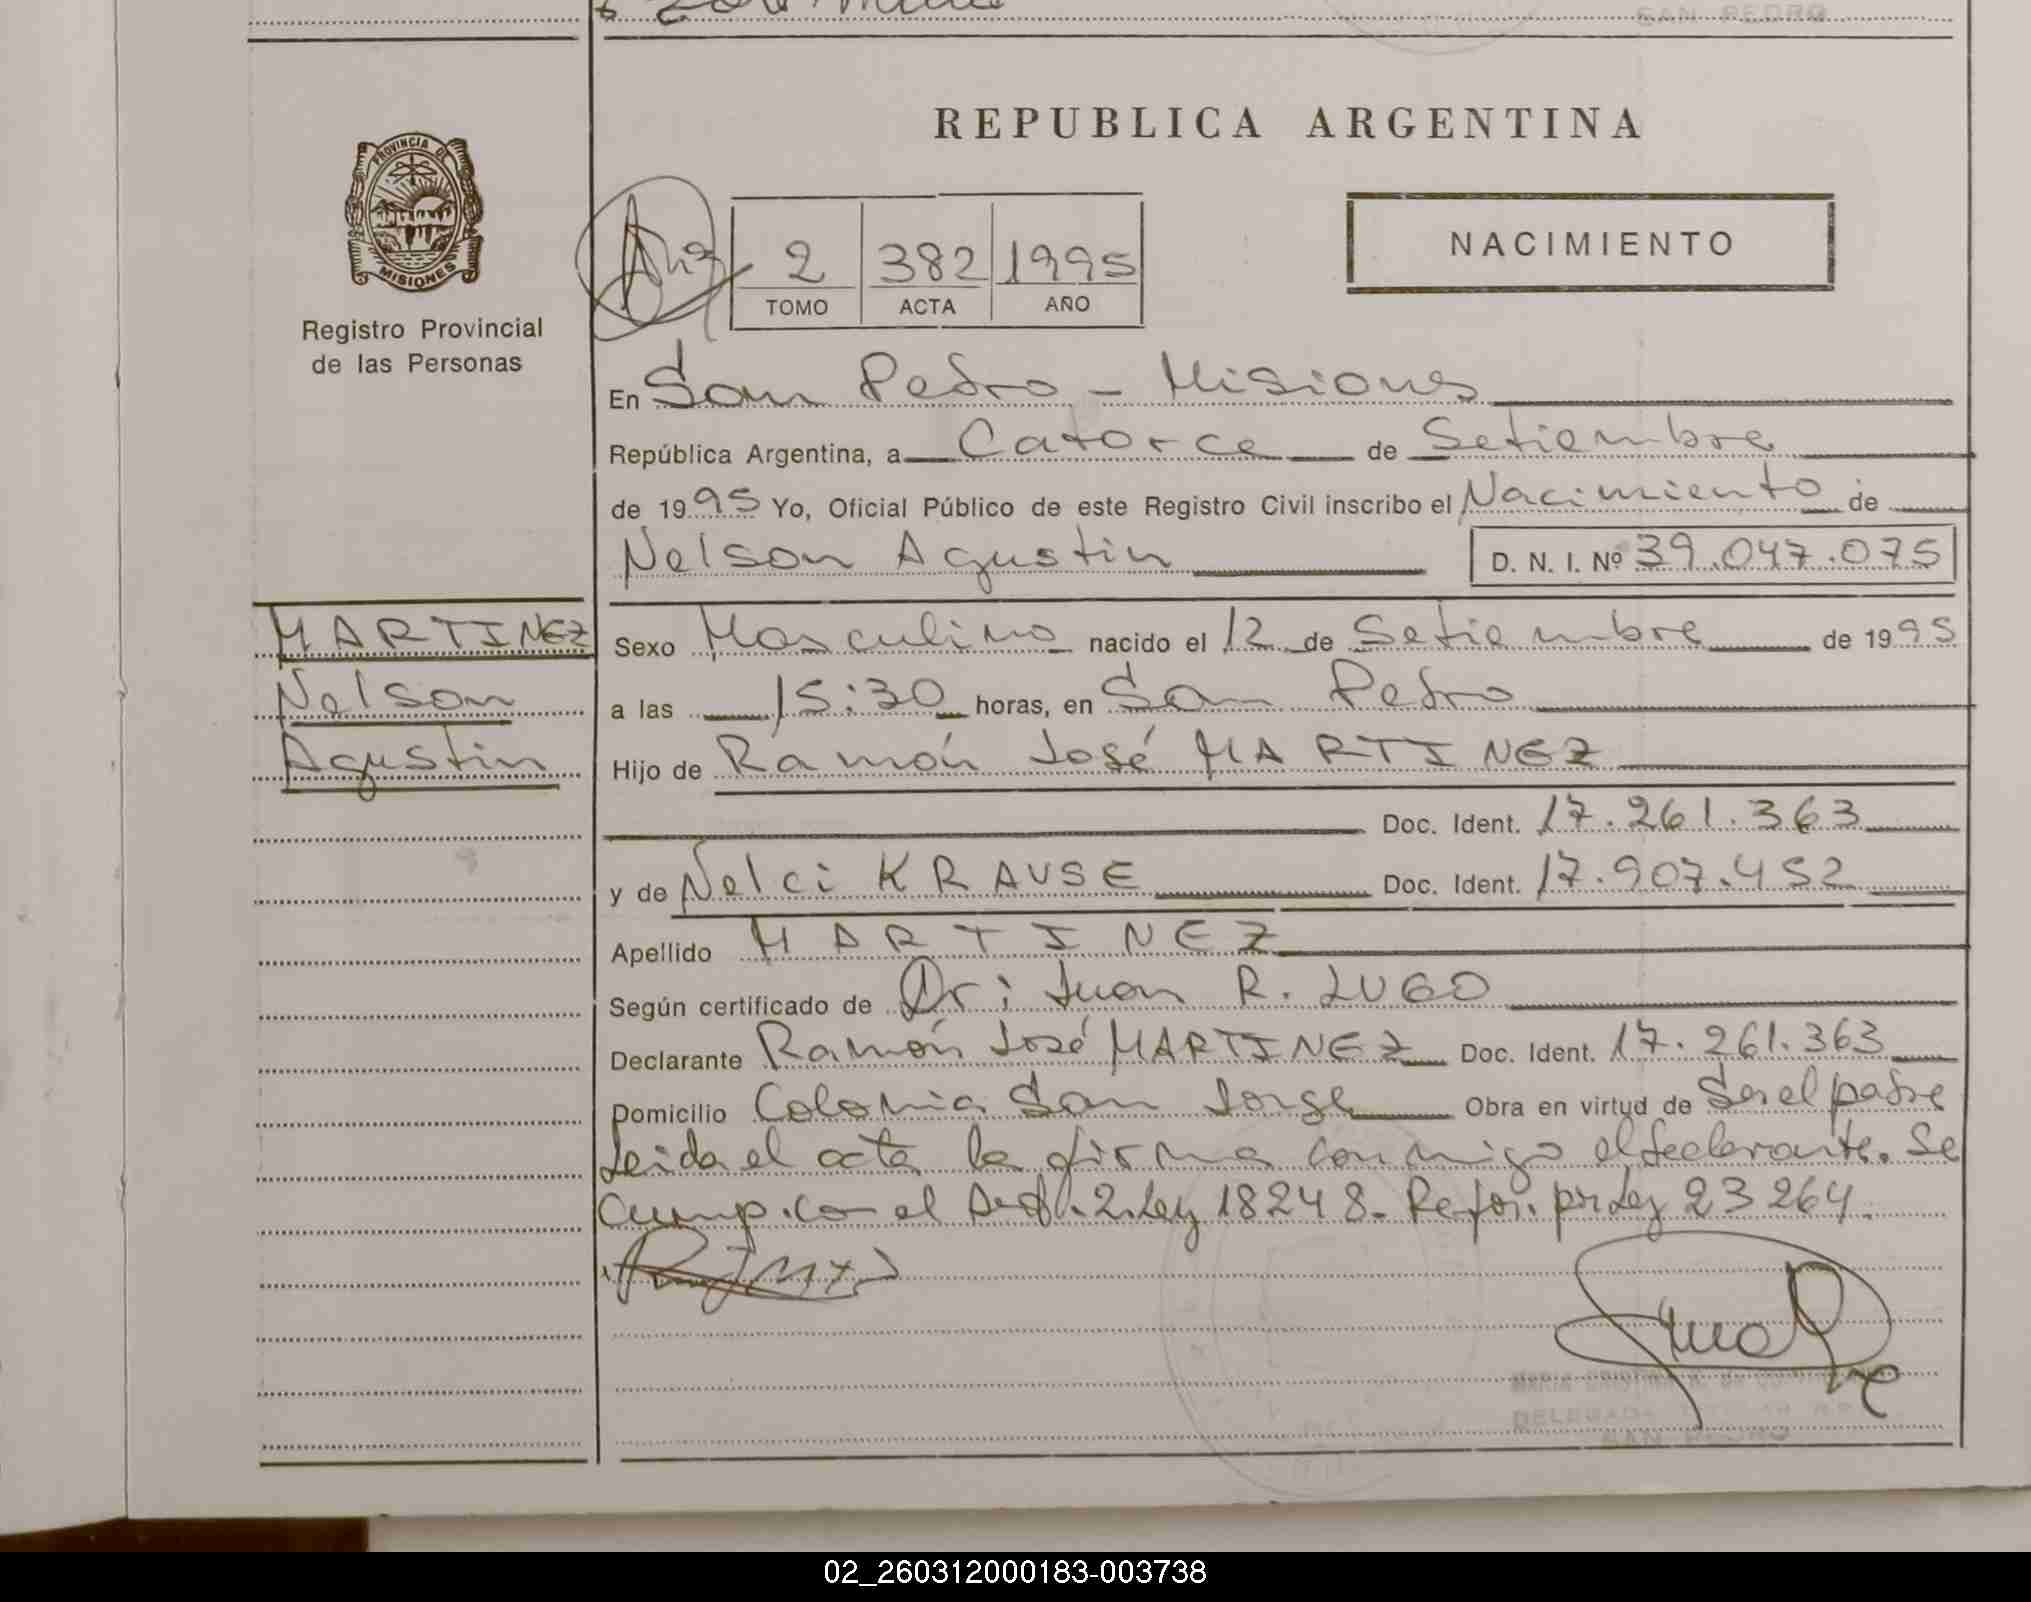 SAN PEDRO
REPUBLICA ARGENTINA
PROVINCIA DE
MISIONES
Registro Provincial
de las Personas
2 382 1995
TOMO ACTA AÑO
NACIMIENTO
En San Pedro - Misiones
República Argentina, a Catorce de Setiembre
de 1995 Yo, Oficial Público de este Registro Civil inscribo el Nacimiento de
Nelson Agustin D. N. I. Nº 39.047.075
MARTINEZ
Nelson
Agustin
Sexo Masculino nacido el 12 de Setiembre de 1995
a las 15:30 horas, en San Pedro
Hijo de Ramón José MARTINEZ
Doc. Ident. 17.261.363
y de Nelci KRAUSE Doc. Ident. 17.907.452
Apellido MARTINEZ
Según certificado de Dr: Juan R. LUGO
Declarante Ramón José MARTINEZ Doc. Ident. 17.261.363
Domicilio Colonia San Jorge Obra en virtud de Ser el padre
Leida el acta la firma conmigo el declarante. Se
Cump. con el Art. 2. Ley 18248. Refor. pr Ley 23264.
SAN PEDRO
02_260312000183-003738